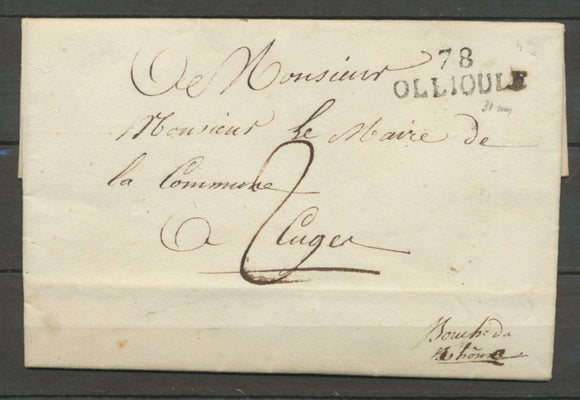 78
OLLIOULE
A Monsieur
Monsieur le Maire de
la Commune
2
A Cuges
Bouch. du
Rhône